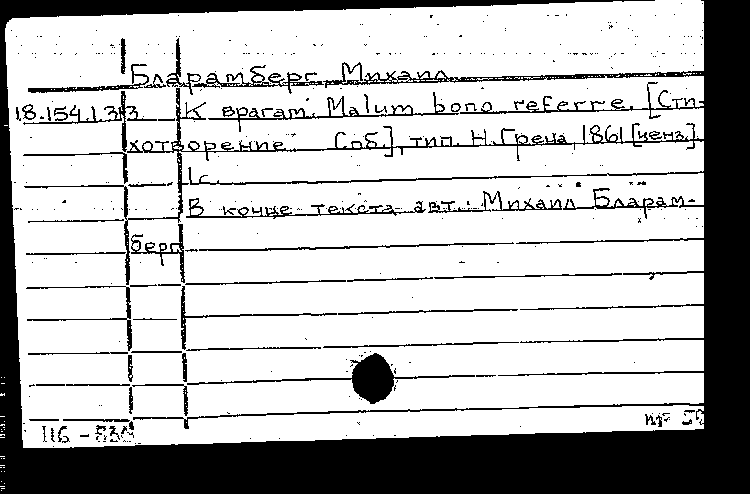 Бларамберг, Михаил
18.154.1.313 К врагам. Malum bono referre. [Сти-
хотворение Спб.], тип. Н. Греча, 1861 [ценз.].
1с.
В конце текста авт.: Михаил Бларам-
берг
116-830